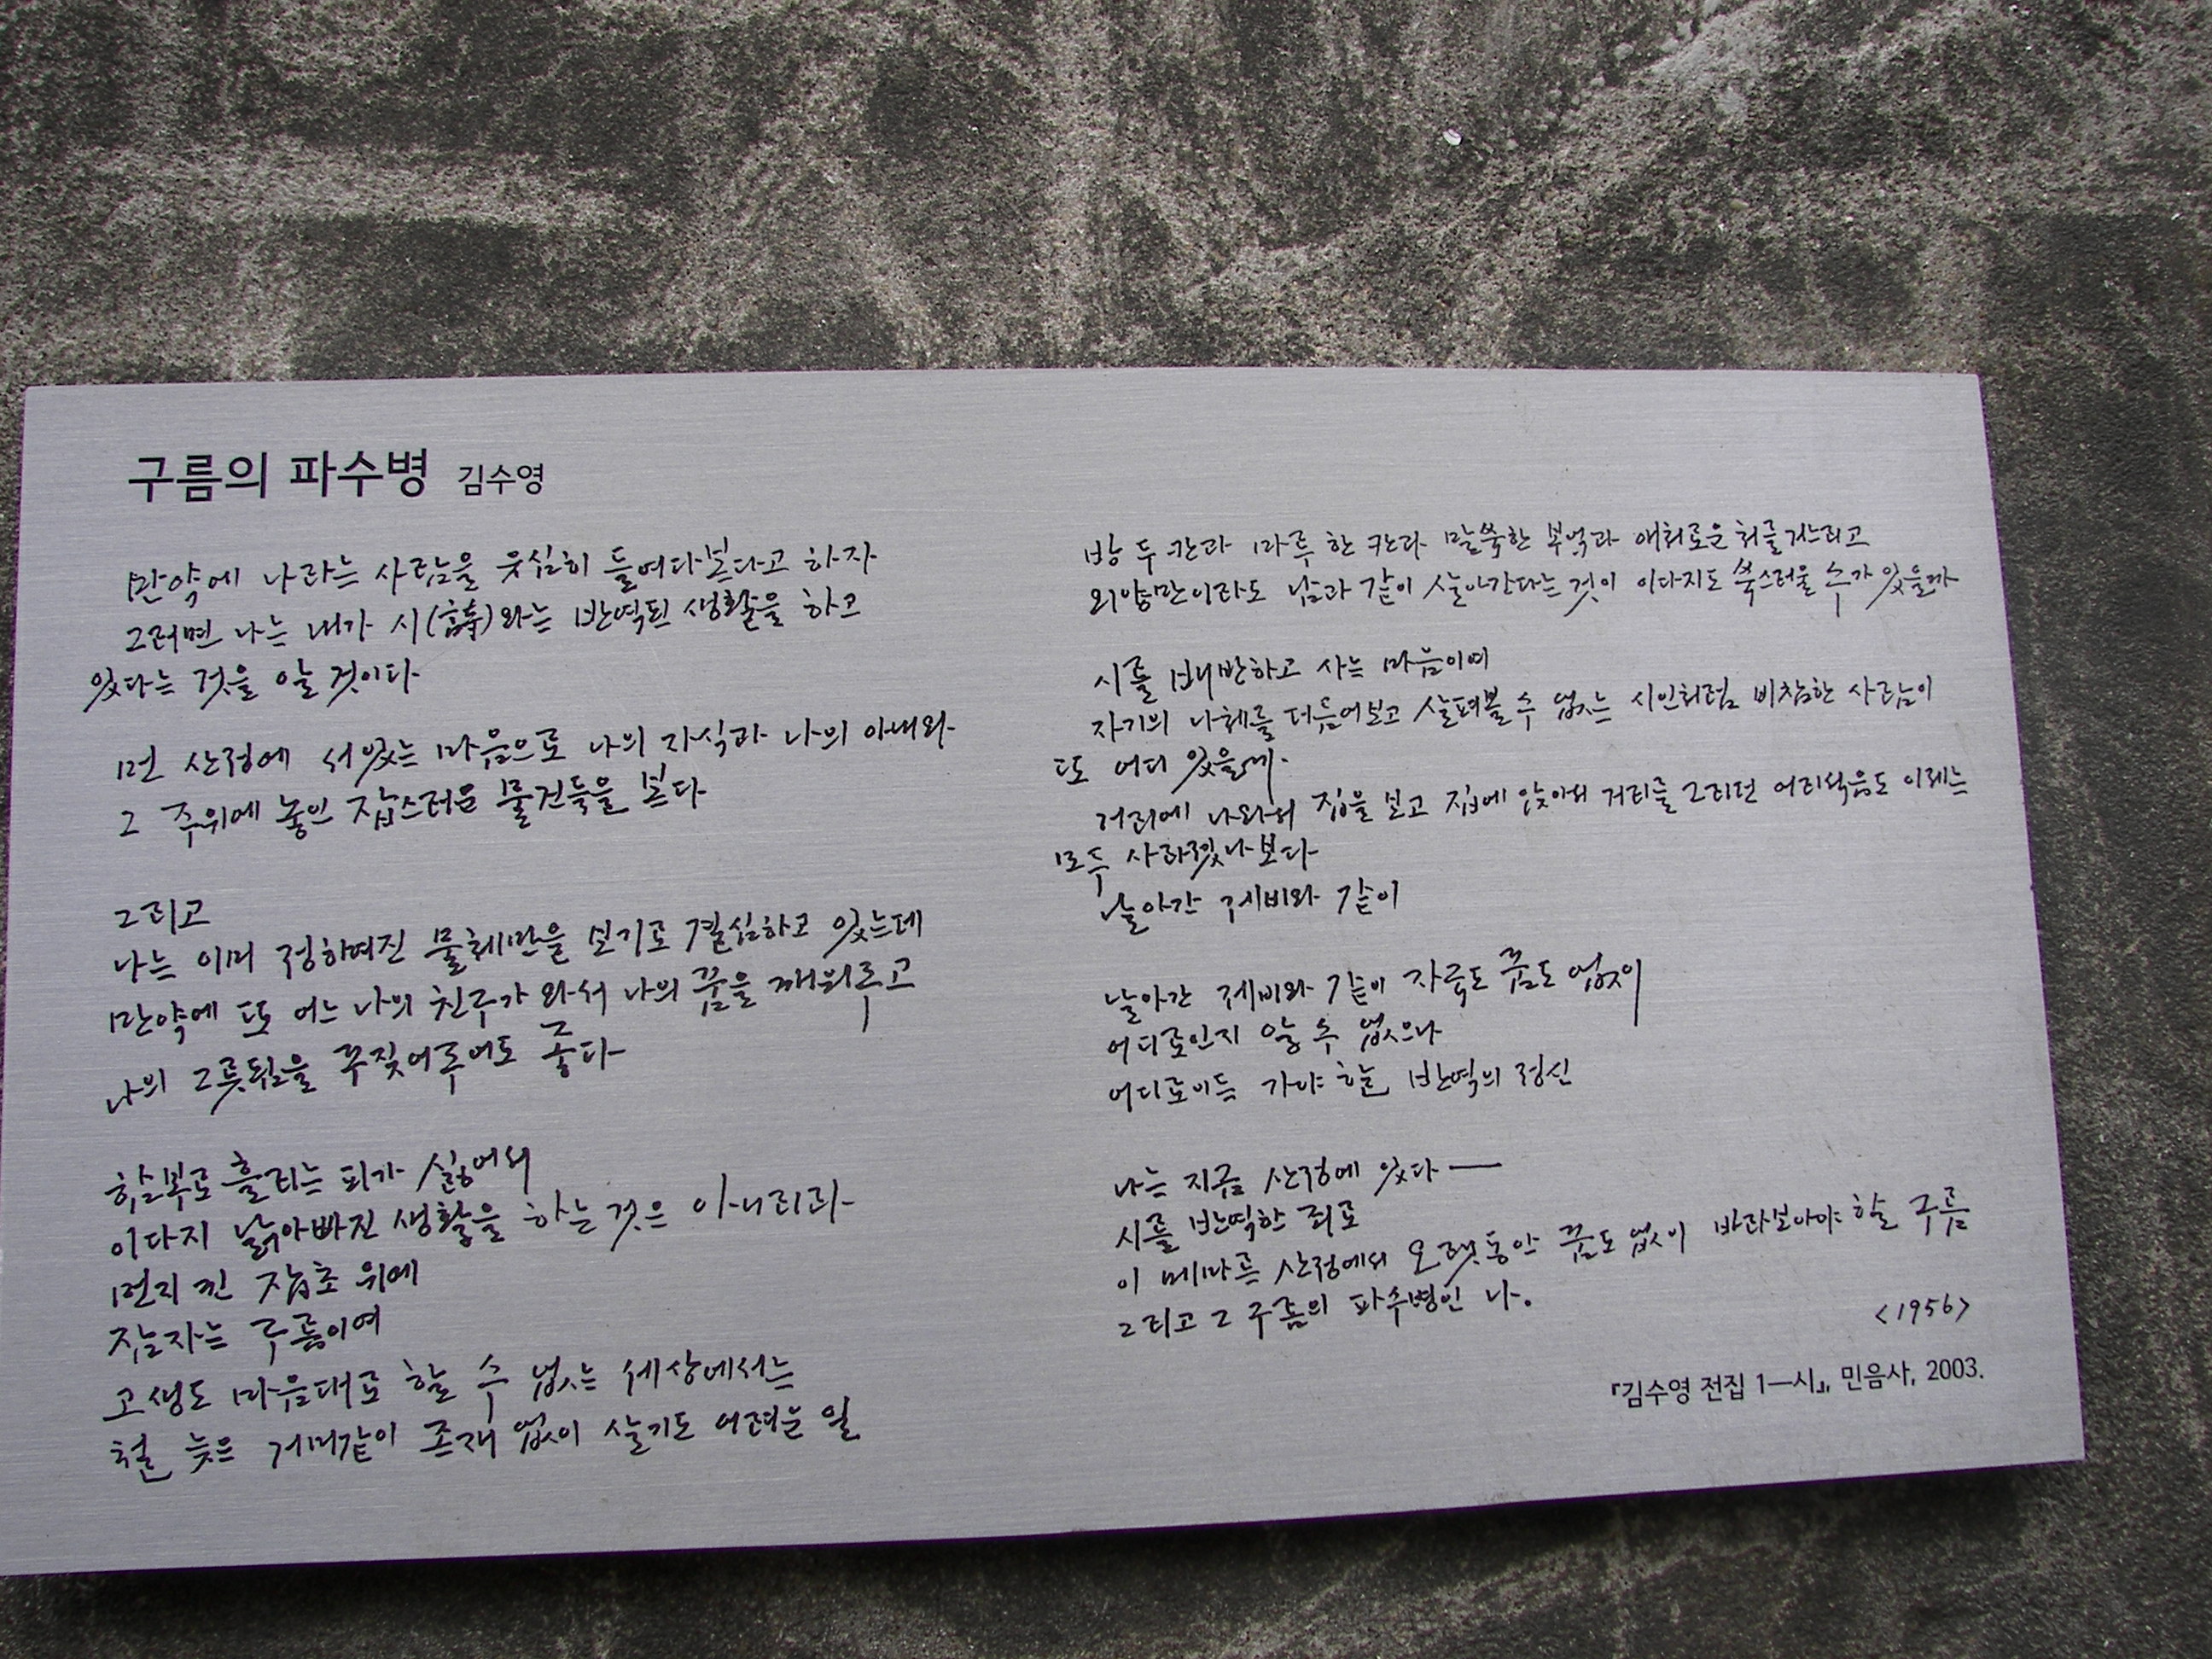 구름의 파수병 김수영
만약에 나라는 사람을 유심히 들여다본다고 하자
그러면 나는 내가 시(詩)와는 반역된 생활을 하고
있다는 것을 알 것이다
먼 산정에 서있는 마음으로 나의 자식과 나의 아내와
그 주위에 놓인 잡스러운 물건들을 본다
그리고
나는 이미 정하여진 물체만을 보기로 결심하고 있는데
만약에 또 어느 나의 친구가 와서 나의 꿈을 깨워주고
나의 그릇됨을 꾸짖어주어도 좋다
함부로 흘리는 피가 싫어서
이다지 낡아빠진 생활을 하는 것은 아니리라
먼지 낀 잡초 위에
잠자는 구름이여
고생도 마음대로 할 수 없는 세상에서는
철 늦은 거미같이 존재 없이 살기도 어려운 일
방 두 칸과 마루 한 칸과 말쑥한 부엌과 애처로운 처를 거느리고
외양만이라도 남과 같이 살아간다는 것이 이다지도 쑥스러울 수가 있을까
시를 배반하고 사는 마음이여
자기의 나체를 더듬어보고 살펴볼 수 없는 시인처럼 비참한 사람이
또 어디 있을까.
거리에 나와서 집을 보고 집에 앉아서 거리를 그리던 어리석음도 이제는
모두 사라졌나보다
날아간 제비와 같이
날아간 제비와 같이 자국도 꿈도 없이
어디로인지 알 수 없으나
어디로이든 가야 할 반역의 정신
나는 지금 산정에 있다 ―
시를 반역한 죄로
이 메마른 산정에서 오랫동안 꿈도 없이 바라보아야 할 구름
그리고 그 구름의 파수병인 나.
<1956>
『김수영 전집 1―시』, 민음사, 2003.